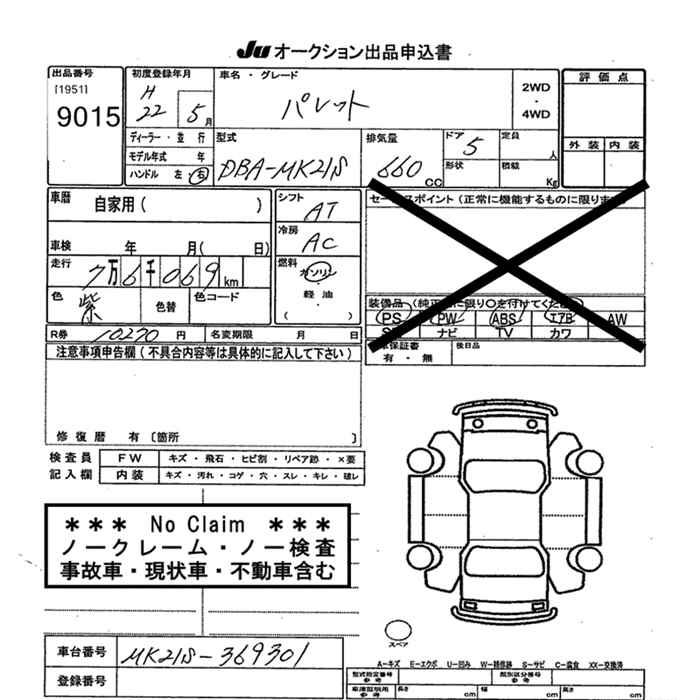 Ju オークション出品申込書
出品番号
[1951]
9015
初度登録年月
H
22 5月
車名・グレード
パレット
2WD
・
4WD
評価点
外装 内装
ディーラー・並行
モデル年式 年
ハンドル 左・右
型式
DBA-MK21S
排気量
660 CC
ドア 5
形状
定員 人
積載 Kg
車歴
自家用( )
車検 年 月( 日)
走行
7万6千069km
色 紫
色替
色コード
シフト
AT
冷房
AC
燃料
ガソリン
軽油
( )
セールスポイント(正常に機能するものに限ります)
装備品(純正品に限り○を付けてください)
PS PW ABS エアB AW
ナビ TV カワ
保証書
有・無
後日品
R券 10270 円
名変期限 月 日
注意事項申告欄(不具合内容等は具体的に記入して下さい)
修復歴 有〔箇所 〕
検査員
記入欄
FW キズ・飛石・ヒビ割・リペア跡・×要
内装 キズ・汚れ・コゲ・穴・スレ・キレ・破レ
*** No Claim ***
ノークレーム・ノー検査
事故車・現状車・不動車含む
スペア
車台番号 MK21S-369301
登録番号
A-キズ E-エクボ U-凹み W-補修跡 S-サビ C-腐食 XX-交換済
型式指定番号
参考
類別区分番号
参考
車庫証明用
参考
長さ cm 幅 cm 高さ cm